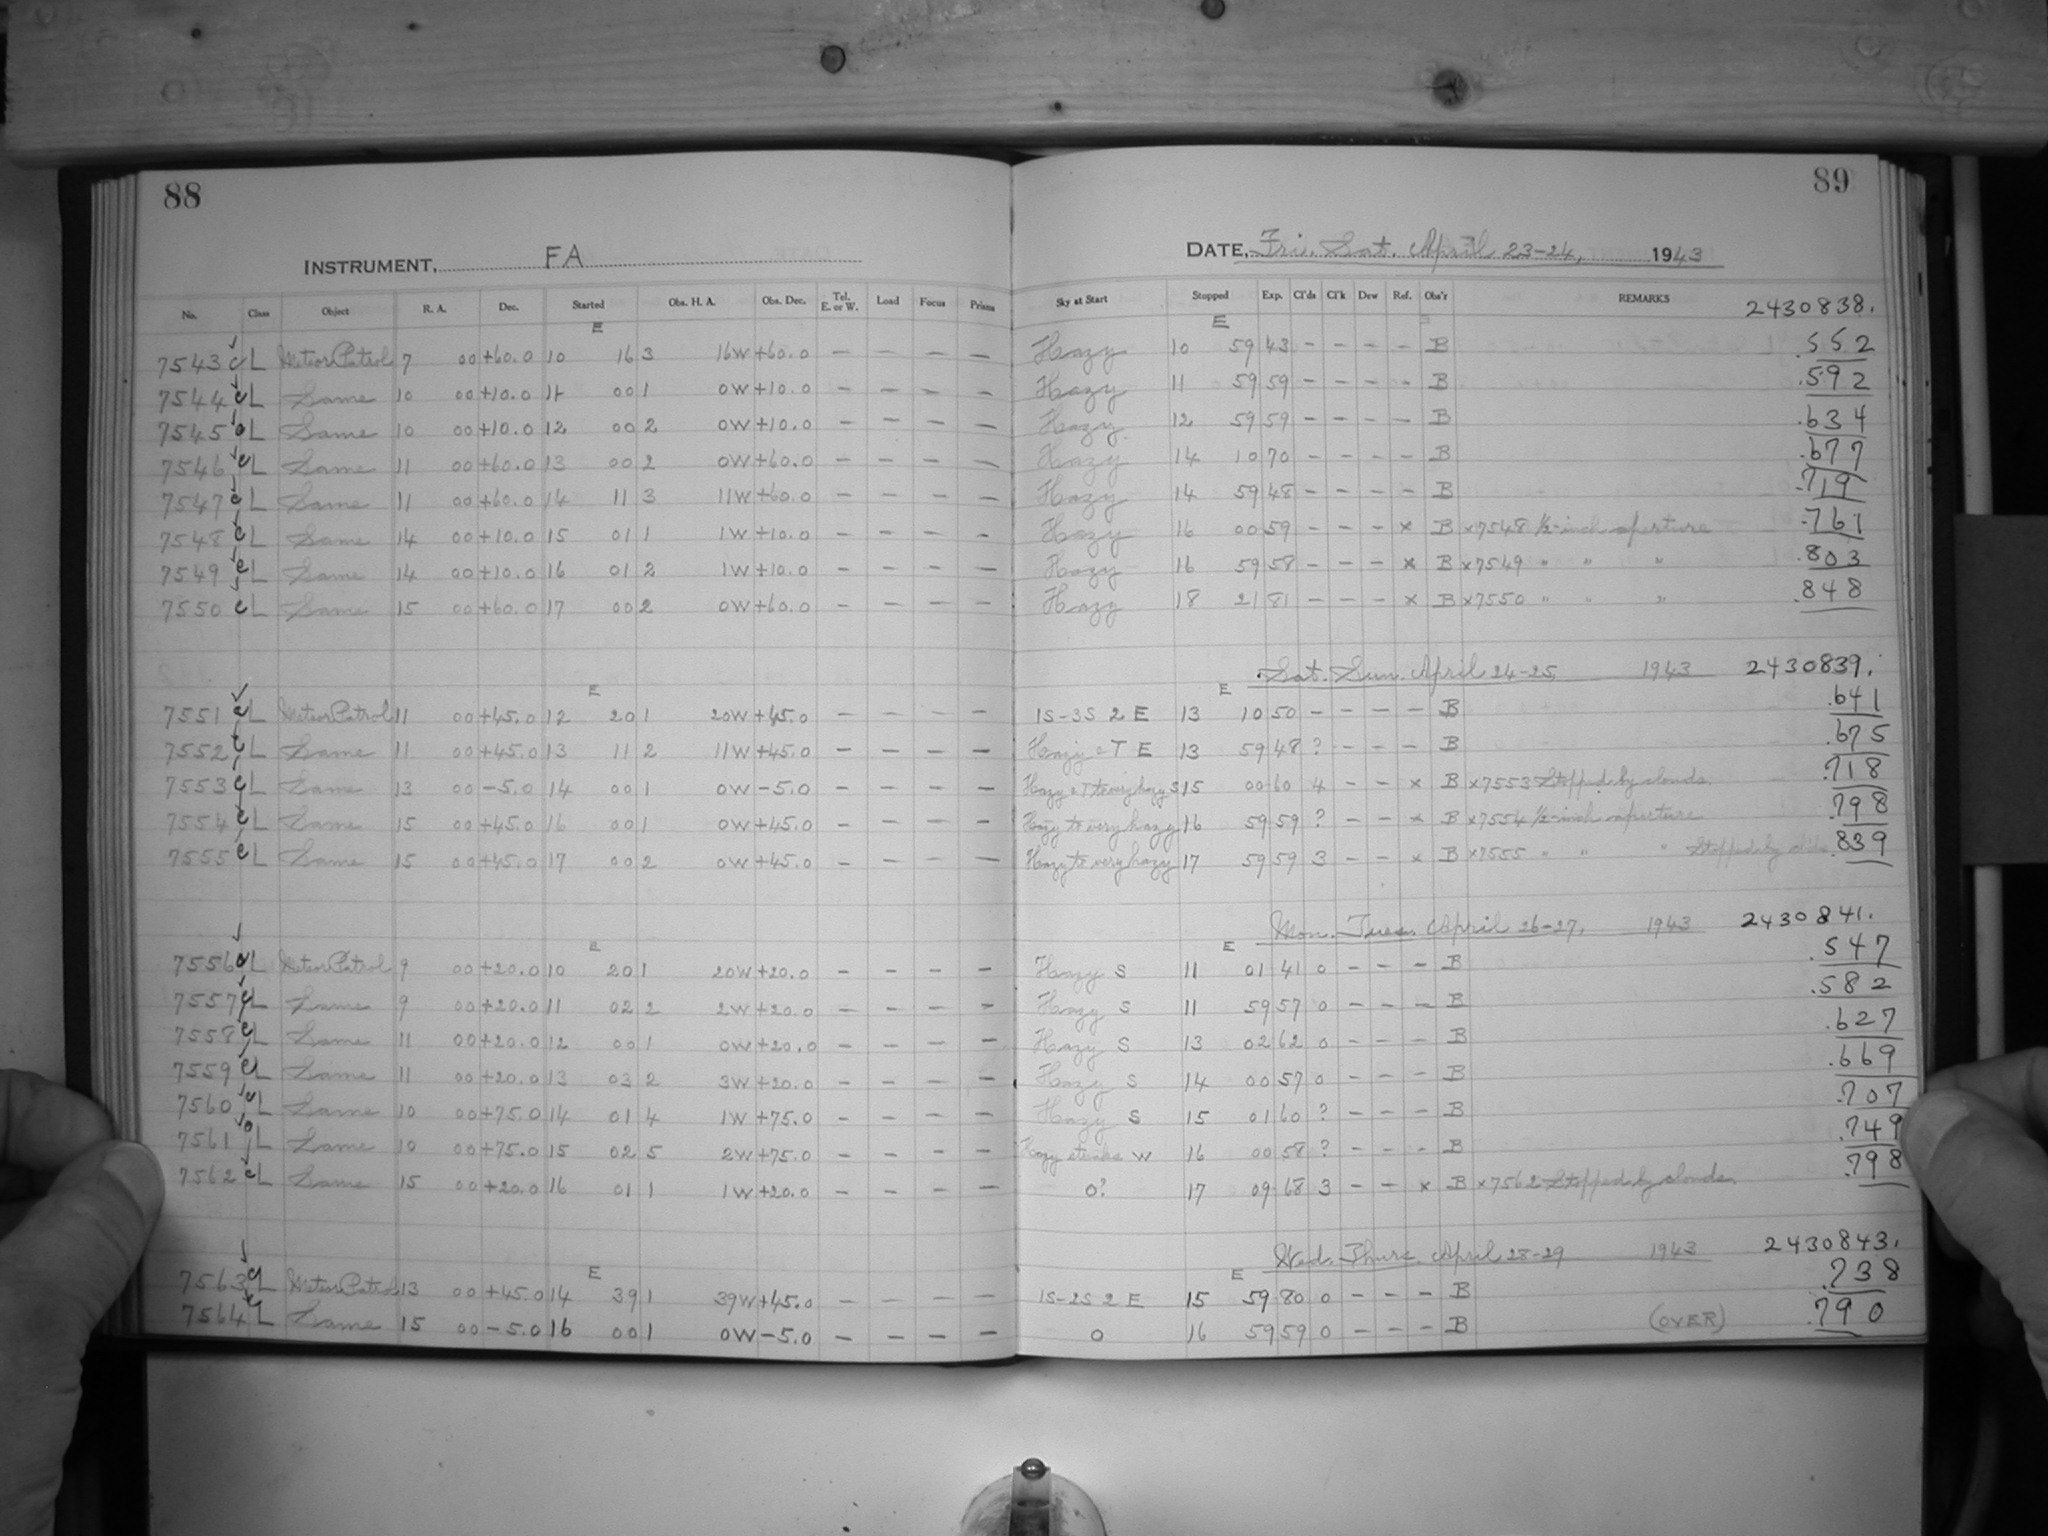 88
INSTRUMENT, FA
No. Class Object R. A. Dec. Started Obs. H. A. Obs. Dec. Tel. E. or W. Load Focus Prisms
E
7543 c L Meteor Patrol 7 00 +60.0 10 16 3 16W +60.0 — — — —
7544 c L Same 10 00 +10.0 11 00 1 0W +10.0 — — — —
7545 L Same 10 00 +10.0 12 00 2 0W +10.0 — — — —
7546 c L Same 11 00 +60.0 13 00 2 0W +60.0 — — — —
7547 c L Same 11 00 +60.0 14 11 3 11W +60.0 — — — —
7548 c L Same 14 00 +10.0 15 01 1 1W +10.0 — — — —
7549 c L Same 14 00 +10.0 16 01 2 1W +10.0 — — — —
7550 c L Same 15 00 +60.0 17 00 2 0W +60.0 — — — —
E
7551 c L Meteor Patrol 11 00 +45.0 12 20 1 20W +45.0 — — — —
7552 c L Same 11 00 +45.0 13 11 2 11W +45.0 — — — —
7553 c L Same 13 00 -5.0 14 00 1 0W -5.0 — — — —
7554 c L Same 15 00 +45.0 16 00 1 0W +45.0 — — — —
7555 c L Same 15 00 +45.0 17 00 2 0W +45.0 — — — —
E
7556 L Meteor Patrol 9 00 +20.0 10 20 1 20W +20.0 — — — —
7557 c L Same 9 00 +20.0 11 02 2 2W +20.0 — — — —
7558 c L Same 11 00 +20.0 12 00 1 0W +20.0 — — — —
7559 c L Same 11 00 +20.0 13 03 2 3W +20.0 — — — —
7560 c L Same 10 00 +75.0 14 01 4 1W +75.0 — — — —
7561 L Same 10 00 +75.0 15 02 5 2W +75.0 — — — —
7562 c L Same 15 00 +20.0 16 01 1 1W +20.0 — — — —
E
7563 c L Meteor Patrol 13 00 +45.0 14 39 1 39W +45.0 — — — —
7564 c L Same 15 00 -5.0 16 00 1 0W -5.0 — — — —
89
DATE, Fri. Sat. April 23-24, 1943
Sky at Start Stopped Exp. Cl'ds Cl'k Dew Ref. Obs'r REMARKS 2430838.
E
Hazy 10 59 43 - - - - B .552
Hazy 11 59 59 - - - - B .592
Hazy 12 59 59 - - - - B .634
Hazy 14 10 70 - - - - B .677
Hazy 14 59 48 - - - - B .719
Hazy 16 00 59 - - - x B x7548 ½-inch aperture .761
Hazy 16 59 58 - - - x B x7549 " " " .803
Hazy 18 21 81 - - - x B x7550 " " " .848
Sat. Sun. April 24-25 1943 2430839.
E
1S-3S 2 E 13 10 50 - - - - B .641
Hazy 2 T E 13 59 48 ? - - - B .675
Hazy 2 T to very hazy S 15 00 60 4 - - x B x7553 Stopped by clouds. .718
Hazy to very hazy 16 59 59 ? - - x B x7554 ½-inch aperture .798
Hazy to very hazy 17 59 59 3 - - x B x7555 " " " Stopped by cl'ds .839
Mon. Tues. April 26-27, 1943 2430841.
E
Hazy S 11 01 41 0 - - - B .547
Hazy S 11 59 57 0 - - - B .582
Hazy S 13 02 62 0 - - - B .627
Hazy S 14 00 57 0 - - - B .669
Hazy S 15 01 60 ? - - - B .707
Hazy streaks W 16 00 58 ? - - - B .749
0? 17 09 68 3 - - x B x7562 Stopped by clouds. .798
Wed. Thurs. April 28-29 1943 2430843.
E
1S-2S 2 E 15 59 80 0 - - - B .738
0 16 59 59 0 - - - B (OVER) .790